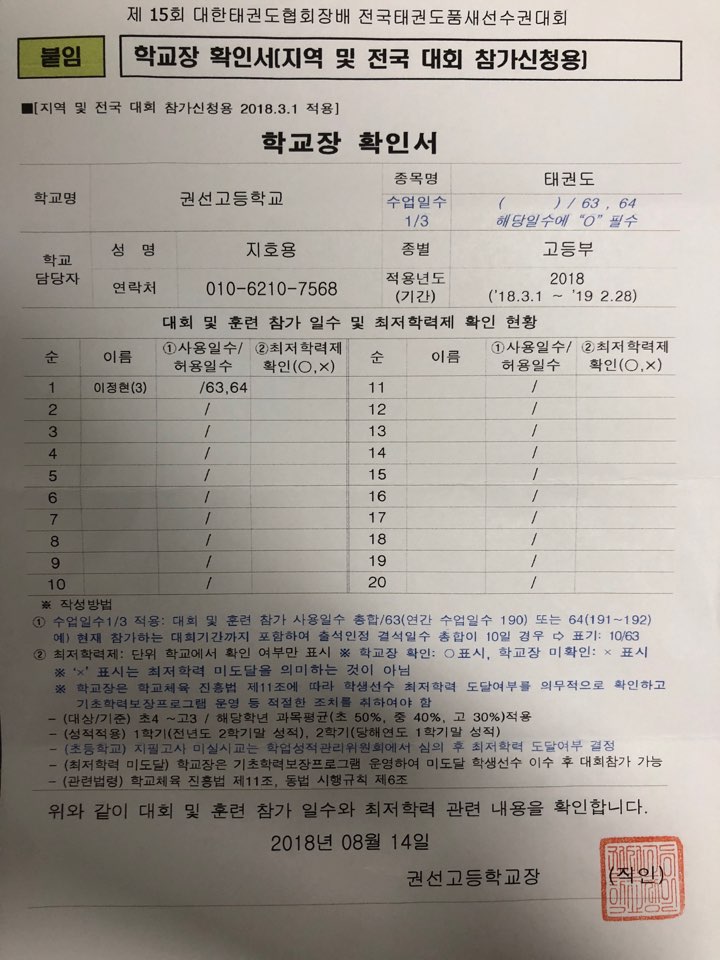 제 15회 대한태권도협회장배 전국태권도품새선수권대회
붙임 학교장 확인서(지역 및 전국 대회 참가신청용)
■[지역 및 전국 대회 참가신청용 2018.3.1 적용]
학교장 확인서
학교명 권선고등학교 종목명 태권도
수업일수 1/3 ( ) / 63 , 64
해당일수에 "O" 필수
학교 담당자 성 명 지호용 종별 고등부
연락처 010-6210-7568 적용년도 (기간) 2018 ('18.3.1 ~ '19 2.28)
대회 및 훈련 참가 일수 및 최저학력제 확인 현황
순 이름 ①사용일수/허용일수 ②최저학력제 확인(○,×) 순 이름 ①사용일수/허용일수 ②최저학력제 확인(○,×)
1 이정현(3) /63,64 11 /
2 / 12 /
3 / 13 /
4 / 14 /
5 / 15 /
6 / 16 /
7 / 17 /
8 / 18 /
9 / 19 /
10 / 20 /
※ 작성방법
① 수업일수1/3 적용: 대회 및 훈련 참가 사용일수 총합/63(연간 수업일수 190) 또는 64(191~192)
예) 현재 참가하는 대회기간까지 포함하여 출석인정 결석일수 총합이 10일 경우 ⇨ 표기: 10/63
② 최저학력제: 단위 학교에서 확인 여부만 표시 ※ 학교장 확인: ○표시, 학교장 미확인: × 표시
※ '×' 표시는 최저학력 미도달을 의미하는 것이 아님
※ 학교장은 학교체육 진흥법 제11조에 따라 학생선수 최저학력 도달여부를 의무적으로 확인하고
기초학력보장프로그램 운영 등 적절한 조치를 취하여야 함
- (대상/기준) 초4 ~고3 / 해당학년 과목평균(초 50%, 중 40%, 고 30%)적용
- (성적적용) 1학기(전년도 2학기말 성적), 2학기(당해연도 1학기말 성적)
- (초등학교) 지필고사 미실시교는 학업성적관리위원회에서 심의 후 최저학력 도달여부 결정
- (최저학력 미도달) 학교장은 기초학력보장프로그램 운영하여 미도달 학생선수 이수 후 대회참가 가능
- (관련법령) 학교체육 진흥법 제11조, 동법 시행규칙 제6조
위와 같이 대회 및 훈련 참가 일수와 최저학력 관련 내용을 확인합니다.
2018년 08월 14일
권선고등학교장 (직인)